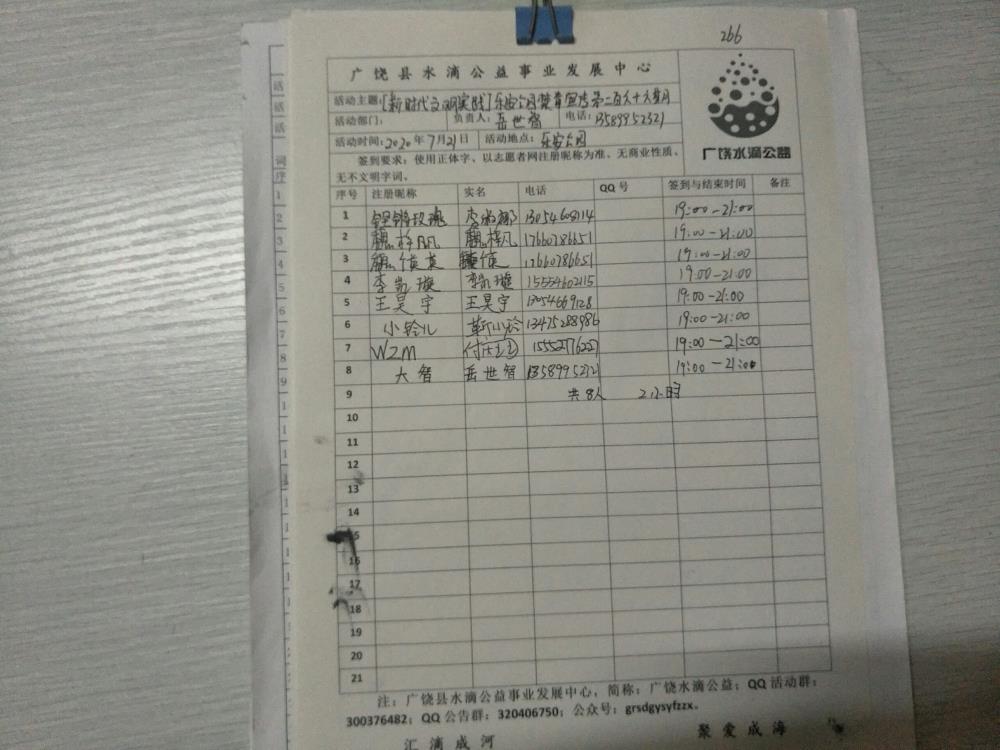 266
广饶县水滴公益事业发展中心
活动主题:[新时代文明实践]乐安公园禁毒宣传第二百六十六星月
活动部门: 负责人:岳世智 电话:13589952321
活动时间:2020年7月21日 活动地点:乐安公园
签到要求:使用正体字、以志愿者网注册昵称为准、无商业性质、
无不文明字词。
广饶水滴公益
序号 注册昵称 实名 电话 QQ号 签到与结束时间 备注
1 铿锵玫瑰 13054608114 19:00-21:00
2 魏梓凡 魏梓凡 17660786651 19:00-21:00
3 17660786651 19:00-21:00
4 李凯璇 李凯璇 15554602115 19:00-21:00
5 王昊宇 王昊宇 13054669128 19:00-21:00
6 小铃儿 靳小玲 13475288986 19:00-21:00
7 WZM 19:00-21:00
8 大智 岳世智 19:00-21:00
9 共8人 2小时
10
11
12
13
14
15
16
17
18
19
20
21
注:广饶县水滴公益事业发展中心,简称:广饶水滴公益;QQ活动群:
300376482;QQ公告群:320406750;公众号:grsdgysyfzzx。
汇滴成河 聚爱成海